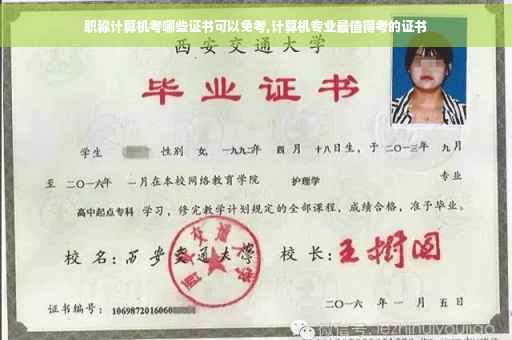 职称计算机考哪些证书可以免考,计算机专业最值得考的证书
西安交通大学
毕业证书
学生 性别 女, 一九九二年 四月 十八日生, 于 二〇一三年 九月
至 二〇一六年 一月在本校网络教育学院 护理学 专业
高中起点专科 学习, 修完教学计划规定的全部课程, 成绩合格, 准予毕业。
校名: 西安交通大学 校长: 王树国
西安交通大学
证书编号: 1069872016060
二〇一六年 一月五日
微信号: jiezhinuiyoujiao